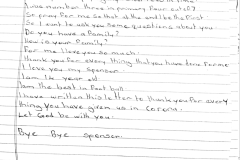 I love number three in primary four ectoll?
So pray for me so that at the end be the first.
I can't to ask you some questions about you
Do you have a family?
How is your family?
For me I love you so much.
thank you for every thing that you have done for me
I love my sponser
I am 14 year old
I am the best in Foot ball
I have written this letter to thank you for every
thing you have given us in Corona.
Let God be with you.
Bye Bye sponser.